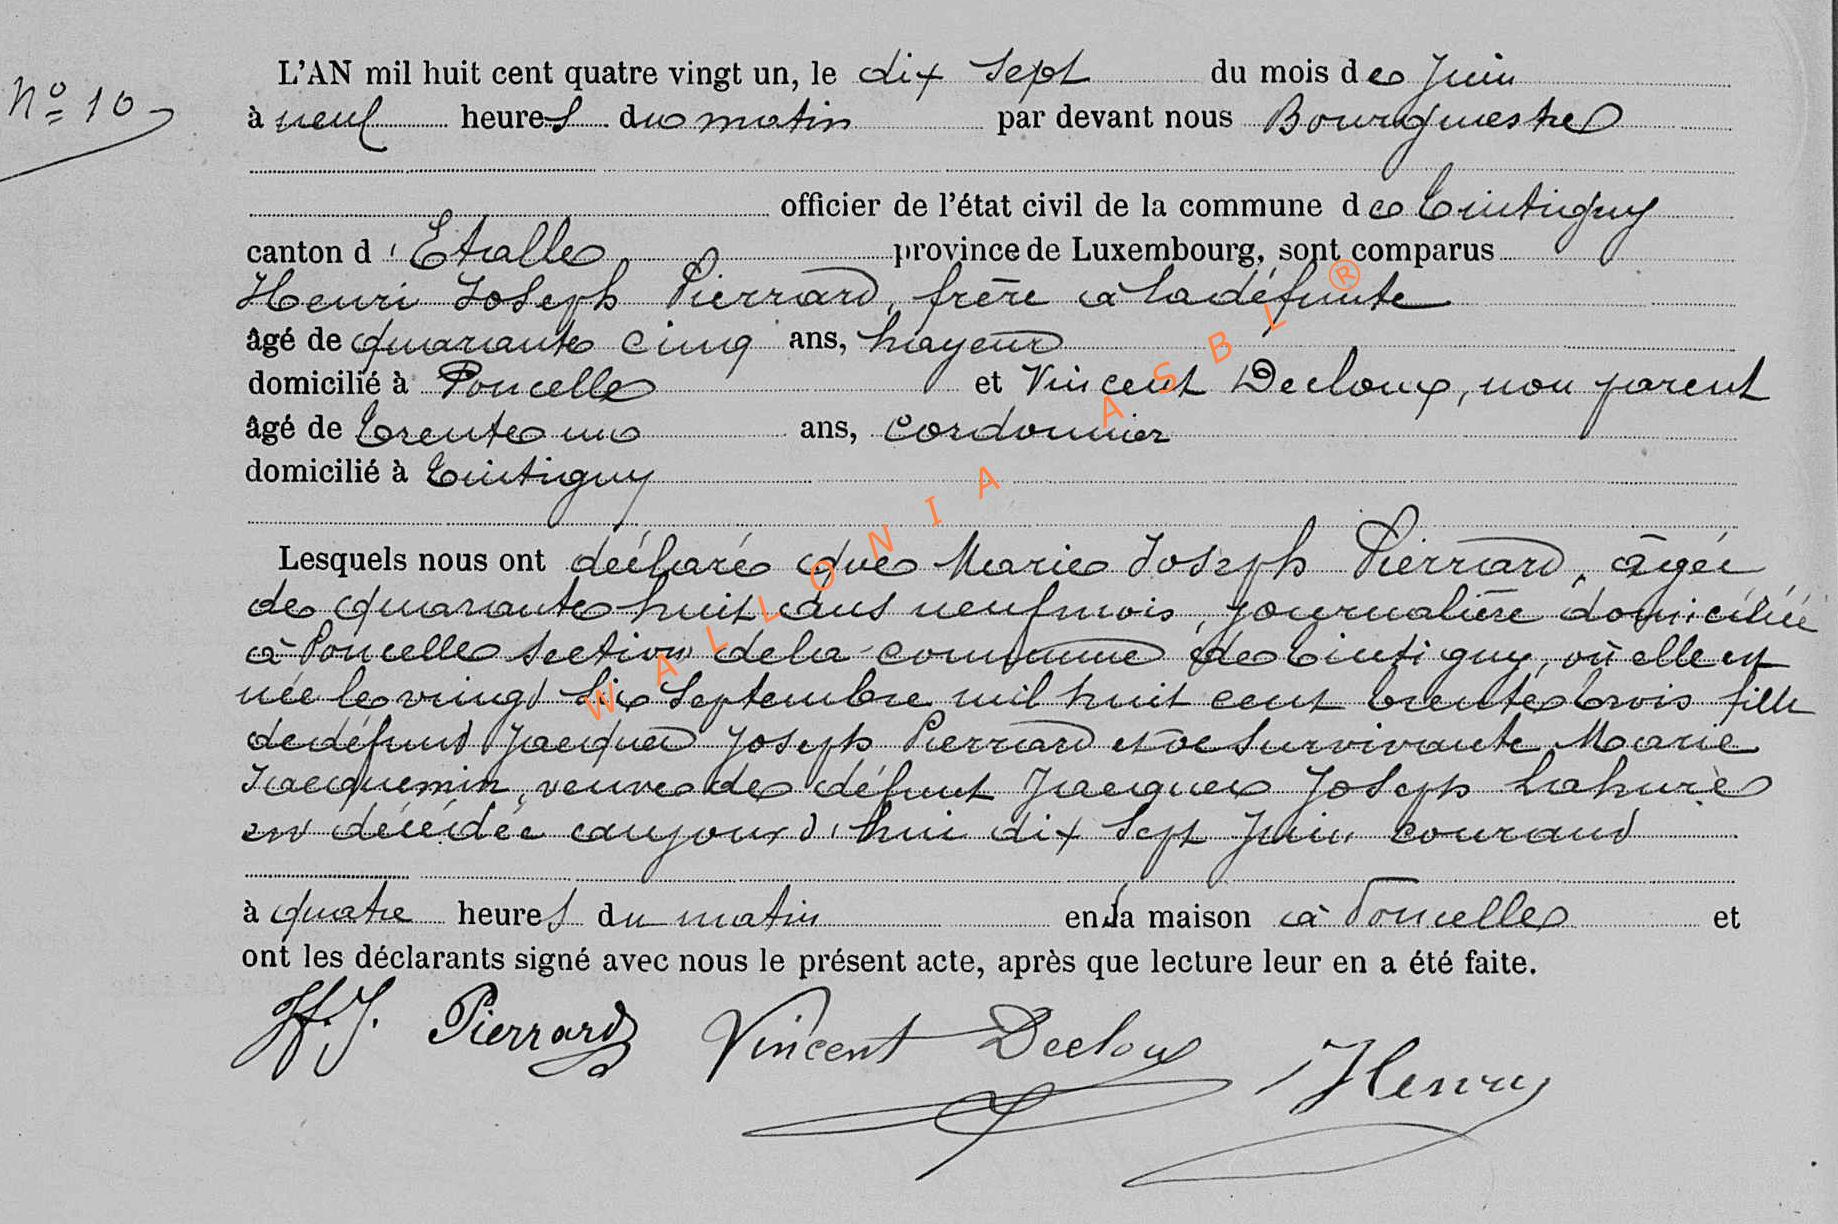 N° 10
L'AN mil huit cent quatre vingt un, le dix sept du mois de Juin
à neuf heures du matin par devant nous Bourgmestre
officier de l'état civil de la commune de Tintigny
canton d'Etalle province de Luxembourg, sont comparus
Henri Joseph Pierrard, frère à la défunte
âgé de quarante cinq ans,
domicilié à Poncelle et Vincent Decloux, non parent
âgé de trente un ans, cordonnier
domicilié à Tintigny
Lesquels nous ont déclaré que Marie Joseph Pierrard, âgée
de quarante huit ans neuf mois, journalière domiciliée
à Poncelle section de la commune de Tintigny, où elle est
née le vingt six Septembre mil huit cent trente trois fille
de défunt Jacques Joseph Pierrard et de survivante Marie
Jacquemin, veuve de défunt Jacques Joseph Lahure
est décédée aujourd'hui dix sept Juin courant
à quatre heures du matin en sa maison à Poncelle et
ont les déclarants signé avec nous le présent acte, après que lecture leur en a été faite.
H. J. Pierrard Vincent Decloux Henry
WALLONIA ASBL ®